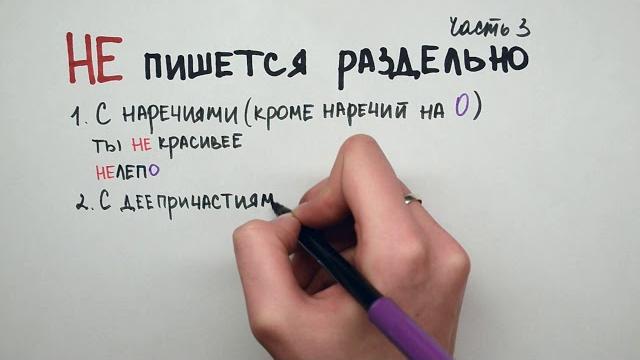 Часть 3
НЕ ПИШЕТСЯ РАЗДЕЛЬНО
1. С НАРЕЧИЯМИ (КРОМЕ НАРЕЧИЙ НА О)
ТЫ НЕ КРАСИВЕЕ
НЕЛЕПО
2. С ДЕЕПРИЧАСТИЯМ